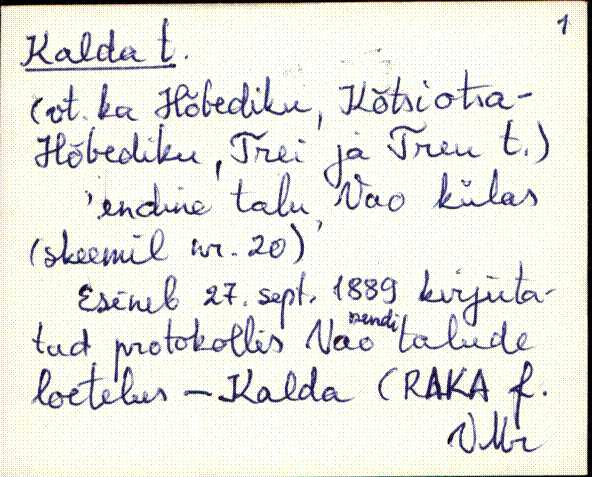 1
Kalda t.
(vt. ka Hõbediku, Kõtsiotsa-
Hõbediku, Trei ja Treu t.)
'endine talu Vao külas'
(skeemil nr. 20)
Esineb 27. sept. 1889 kirjuta-
tud protokollis Vao nendi talude
loetelus – Kalda (RAKA f.
VMr